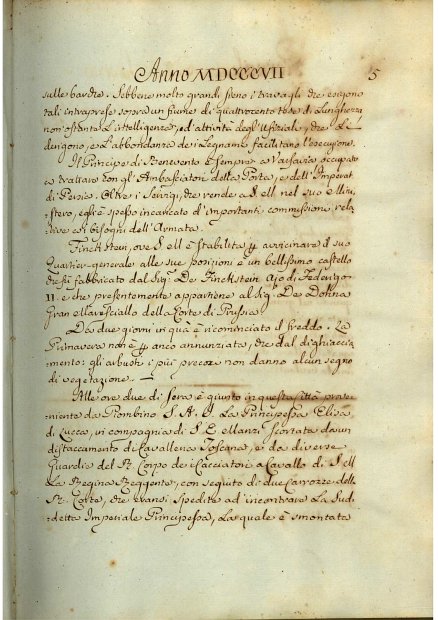 Anno MDCCCVII
5
sulle barche. Sebbene molto grandi sieno i travagli che esigono
tali intraprese sopra un fiume di quattrocento tese di Lunghezza
non'ostante L'intelligenza, ed'attività degl'Ufiziali, che Li
dirigono, e L'abbondanza de i Legnami facilitano l'esecuzione.
Il Principe di Benevento è sempre a Varsavia occupato
a trattare con gl'Ambasciatori della Porta, e dell'Imperat.
di Persia. Oltre i Servigi, che rende a S. M nel suo Mini
stero, egli è spesso incaricato d'importanti commissioni rela
tive ai bisogni dell'Armata.
Finckstein, ove S. M è stabilita p avvicinare il suo
Quartier-generale alle sue posizioni è un bellissimo castello
che fù fabbricato dal Sig. De Finckstein Ajo di Federigo
II. e che presentemente appartiene al Sig. De Dohna
Gran Maresciallo della Corte di Prussia.
Da due giorni in quà è ricominciato il freddo. La
Primavera non è p anco annunziata, che dal dighiaccia
mento: gli arbusti i più precoci non danno alcun segno
di vegetazione.
Alle ore due di sera è giunto in questa Città prove
niente da Piombino S. A. I. La Principessa Elisa
di Lucca, in compagnia di S. E. scortata da un
distaccamento di Cavalleria Toscana, e da diverse
Guardie del R. Corpo de i Cacciatori a Cavallo di S. M
La Regina Reggente, con seguito di due Carrozze della
R. Corte, che eransi spedite ad'incontrare La Sud.
detta Imperiale Principessa, La quale è smontata